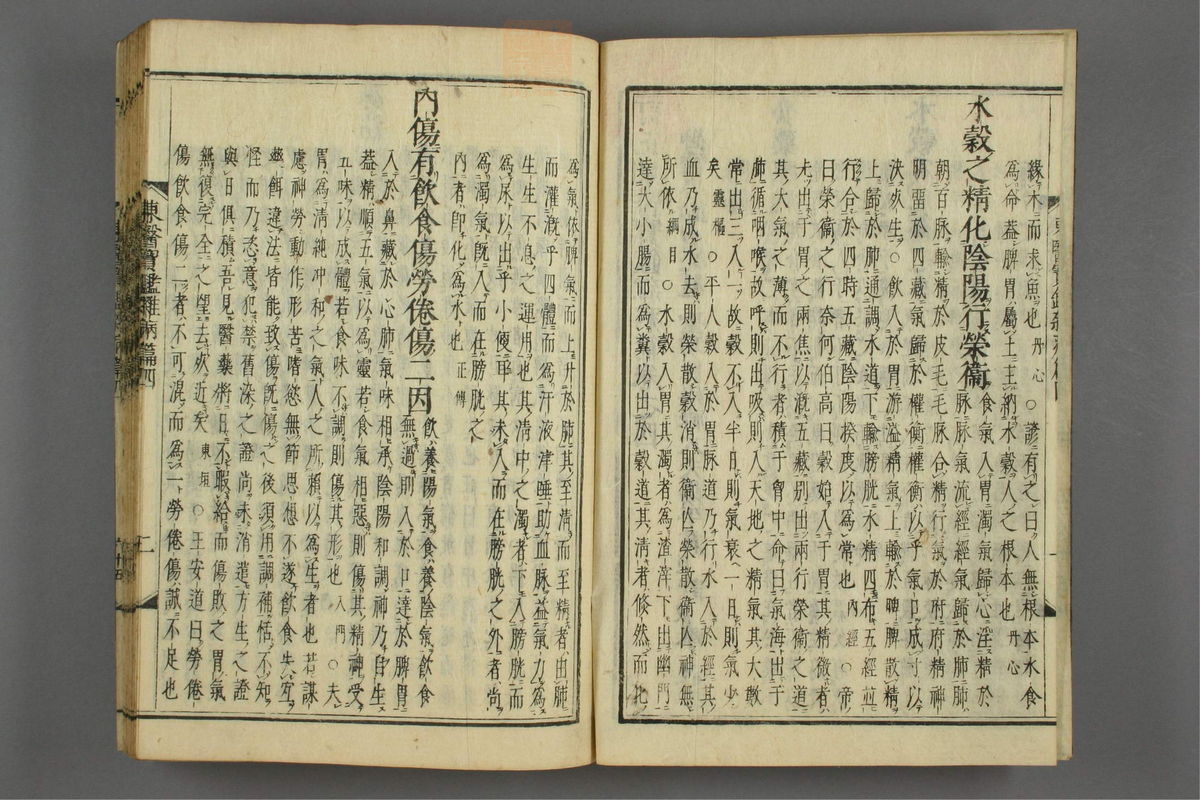 緣木而求魚也 丹心 ○諺有之曰人無根本水食
爲命葢脾胃屬土主納水穀人之根本也 丹心
水穀之精化陰陽行榮衛 食氣入胃濁氣歸心淫精於
脉脉氣流經經氣歸於肺肺
朝百脉輸精於皮毛毛脉合精行氣於府府精神
明留於四藏氣歸於權衡權衡以平氣口成寸以
決死生○飮入於胃游溢精氣上輸於脾脾散精
上歸於肺通調水道下輸膀胱水精四布五經並
行合於四時五藏陰陽揆度以爲常也 內經 ○帝
曰榮衛之行奈何伯高曰穀始入于胃其精微者
先出于胃之兩焦以漑五藏別出兩行榮衛之道
其大氣之薄而不行者積于胷中命曰氣海出于
肺循咽喉故呼則出吸則入天地之精氣其大數
常出三入一故穀不入半日則氣衰一日則氣少
矣 靈樞 ○平人穀入於胃脉道乃行水入於經其
血乃成水去則榮散穀消則衛亾榮散衛亾神無
所依 綱目 ○水穀入胃其濁者爲渣滓下出幽門
達大小腸而爲糞以出於穀道其淸者倐然而化
爲氣依脾氣而上升於肺其至淸而至精者由肺
而灌漑乎四體而爲汗液津唾助血脉益氣力爲
生生不息之運用也其淸中之濁者下入膀胱而
爲尿以出乎小便耳其未入而在膀胱之外者尚
爲濁氣旣入而在膀胱之
內者卽化爲水也 正傳
內傷有飮食傷勞倦傷二因 飮養陽氣食養陰氣飮食
無過則入於口達於脾胃
入於鼻藏於心肺氣味相承陰陽和調神乃自生
葢精順五氣以爲靈若食氣相惡則傷其精神受
五味以成體若食味不調則傷其形也 入門 ○夫
胃爲淸純冲和之氣人之所賴以爲生者也若謀
慮神勞動作形苦嗜慾無節思想不遂飮食失宜
藥餌違法皆能致傷旣傷之後須用調補恬不知
怪而乃恣意犯禁舊染之證尚未消遣方生之證
與日俱積吾見醫藥將日不暇給而傷敗之胃氣
無復完全之望去死近矣 東垣 ○王安道曰勞倦
傷飮食傷二者不可混而爲一勞倦傷誠不足也
東醫寶鑑雜病篇四
二